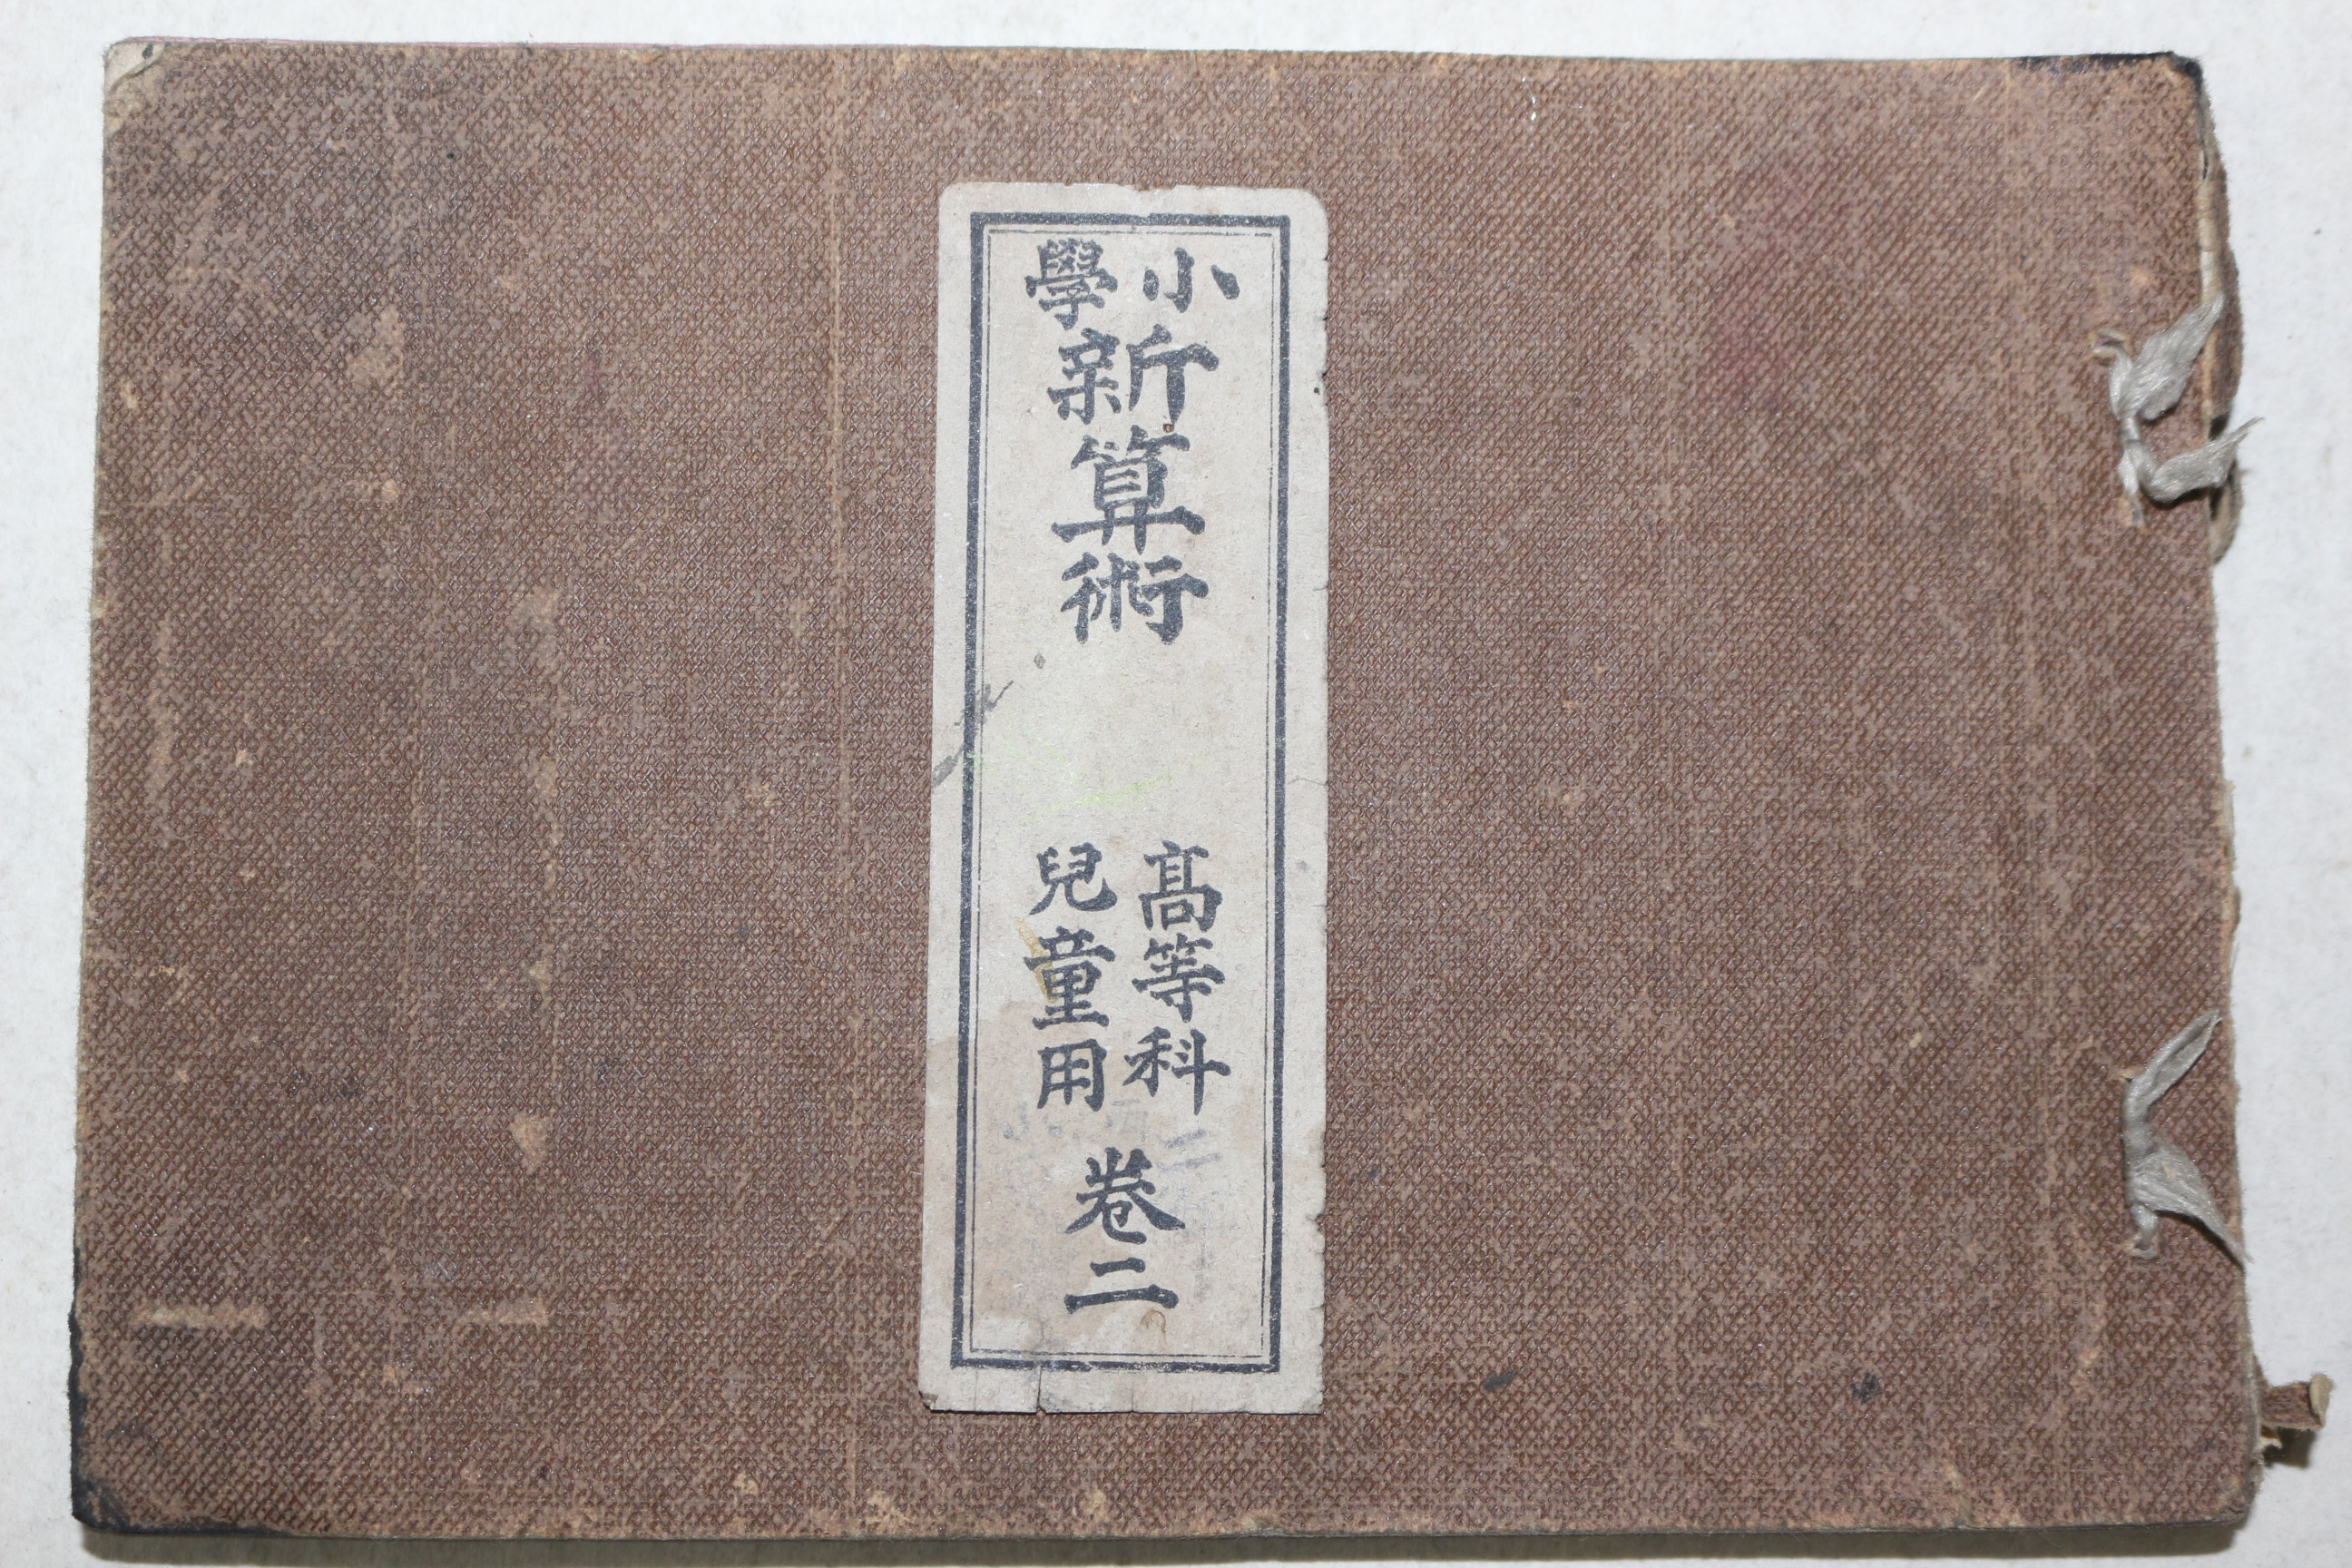 小學新算術
高等科
兒童用
卷二